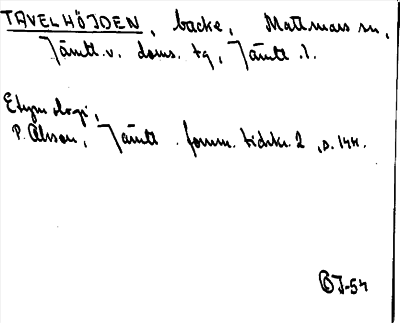 TAVELHÖJDEN, backe, Mattmars sn,
Jämtl. v. doms. tg, Jämtl. l.
Etymologi,
P. Olsson, Jämtl. fornm. tidskr. 2, s. 144.
BJ-54